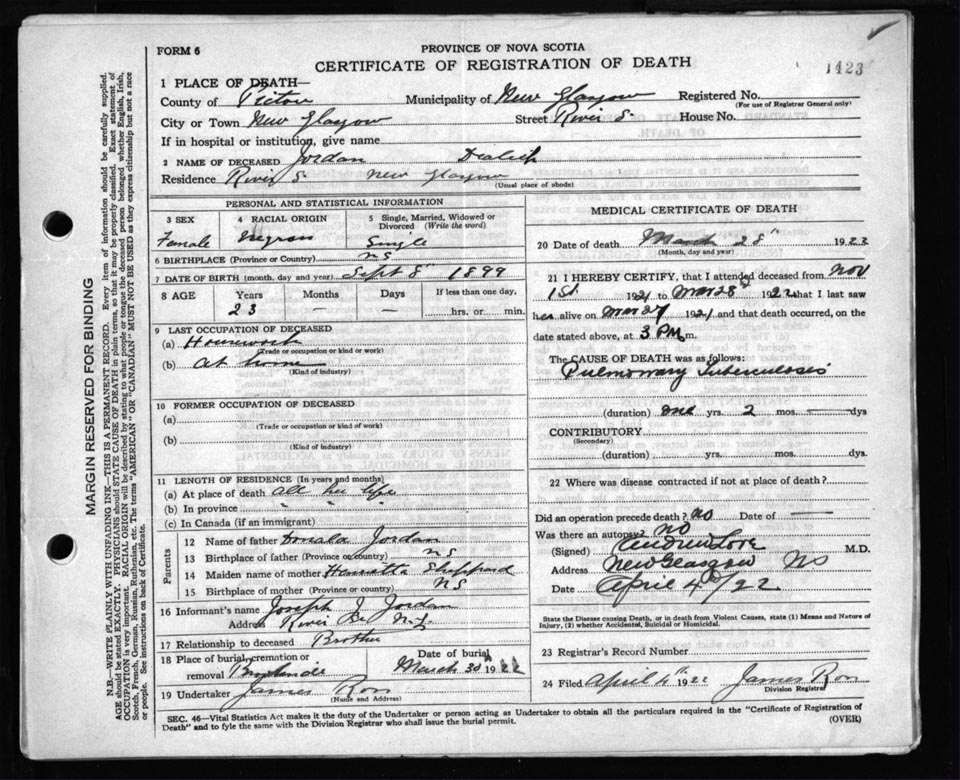 FORM 6
PROVINCE OF NOVA SCOTIA
CERTIFICATE OF REGISTRATION OF DEATH
1423
1 PLACE OF DEATH—
County of Pictou Municipality of New Glasgow Registered No.
(For use of Registrar General only)
City or Town New Glasgow Street River S. House No.
If in hospital or institution, give name
2 NAME OF DECEASED Jordan
Residence River S New Glasgow
(Usual place of abode)
PERSONAL AND STATISTICAL INFORMATION
3 SEX
Female
4 RACIAL ORIGIN
Negro
5 Single, Married, Widowed or Divorced (Write the word)
Single
6 BIRTHPLACE (Province or Country) NS
7 DATE OF BIRTH (month, day and year) Sept 8th 1899
8 AGE Years Months Days If less than one day,
23 — — hrs. or min.
9 LAST OCCUPATION OF DECEASED
(a) Housework
(Trade or occupation or kind or work)
(b) At home
(Kind of Industry)
10 FORMER OCCUPATION OF DECEASED
(a)
(Trade or occupation or kind of work)
(b)
(Kind of Industry)
11 LENGTH OF RESIDENCE (In years and months)
(a) At place of death all her life
(b) In province " " "
(c) In Canada (if an immigrant)
Parents
12 Name of father Jordan
13 Birthplace of father (Province or country) NS
14 Maiden name of mother Henrietta Sheppard
15 Birthplace of mother (Province or country) NS
16 Informant's name Joseph J. Jordan
Address River N.G.
17 Relationship to deceased Brother
18 Place of burial, cremation or removal
Date of burial
March 30th 1922
19 Undertaker James Ross
(Name and Address)
MEDICAL CERTIFICATE OF DEATH
20 Date of death March 28th 1922
(Month, day and year)
21 I HEREBY CERTIFY, that I attended deceased from Nov
1st 1921 to Mar 28th 1922 that I last saw
her alive on Mar 27 1921 and that death occurred, on the
date stated above, at 3 PM m.
The CAUSE OF DEATH was as follows:
Pulmonary Tuberculosis
(duration) one yrs. 2 mos. — dys
CONTRIBUTORY
(Secondary)
(duration) yrs. mos. dys.
22 Where was disease contracted if not at place of death?
Did an operation precede death? No Date of —
Was there an autopsy? No
(Signed) Andrew Love M.D.
Address New Glasgow NS
Date April 4th/22
State the Disease causing Death, or in death from Violent Causes, state (1) Means and Nature of
Injury, (2) whether Accidental, Suicidal or Homicidal.
23 Registrar's Record Number
24 Filed April 4th 1922 James Ross
Division Registrar
SEC. 46—Vital Statistics Act makes it the duty of the Undertaker or person acting as Undertaker to obtain all the particulars required in the "Certificate of Registration of
Death" and to fyle the same with the Division Registrar who shall issue the burial permit.
(OVER)
MARGIN RESERVED FOR BINDING
N.B—WRITE PLAINLY WITH UNFADING INK—THIS IS A PERMANENT RECORD. Every item of information should be carefully supplied.
AGE should be stated EXACTLY. PHYSICIANS should STATE CAUSE OF DEATH in plain terms, so that it may be properly classified. Exact statement of
OCCUPATION is very important. RACIAL ORIGIN will be described by stating to what people or tongue the deceased person belonged whether English, Irish,
Scotch, French, German, Russian, Ruthenian, etc. The terms "AMERICAN" or "CANADIAN" MUST NOT BE USED as they express citizenship but not a race
or people. See instructions on back of Certificate.